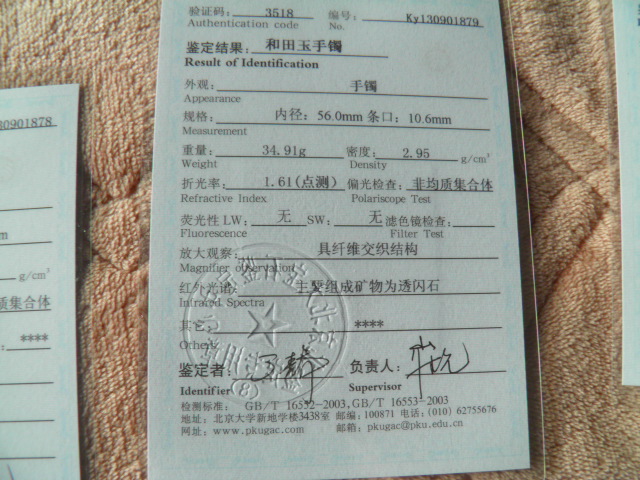 验证码： 3518 编号： Ky130901879
Authentication code No.
鉴定结果： 和田玉手镯
Result of Identification
外观： 手镯
Appearance
规格： 内径：56.0mm 条口：10.6mm
Measurement
重量： 34.91g 密度： 2.95 g/cm³
Weight Density
折光率： 1.61(点测) 偏光检查： 非均质集合体
Refractive Index Polariscope Test
荧光性 LW： 无 SW： 无 滤色镜检查：
Fluorescence Filter Test
放大观察： 具纤维交织结构
Magnifier observation
红外光谱： 主要组成矿物为透闪石
Infrared Spectra
其它： ****
Others
鉴定者： 负责人：
Identifier Supervisor
检测标准： GB/T 16552-2003,GB/T 16553-2003
地址：北京大学新地学楼3438室 邮编：100871 电话：(010) 62755676
网址：www.pkugac.com 邮箱：pkugac@pku.edu.cn
30901878
m
g/cm³
质集合体
：
****